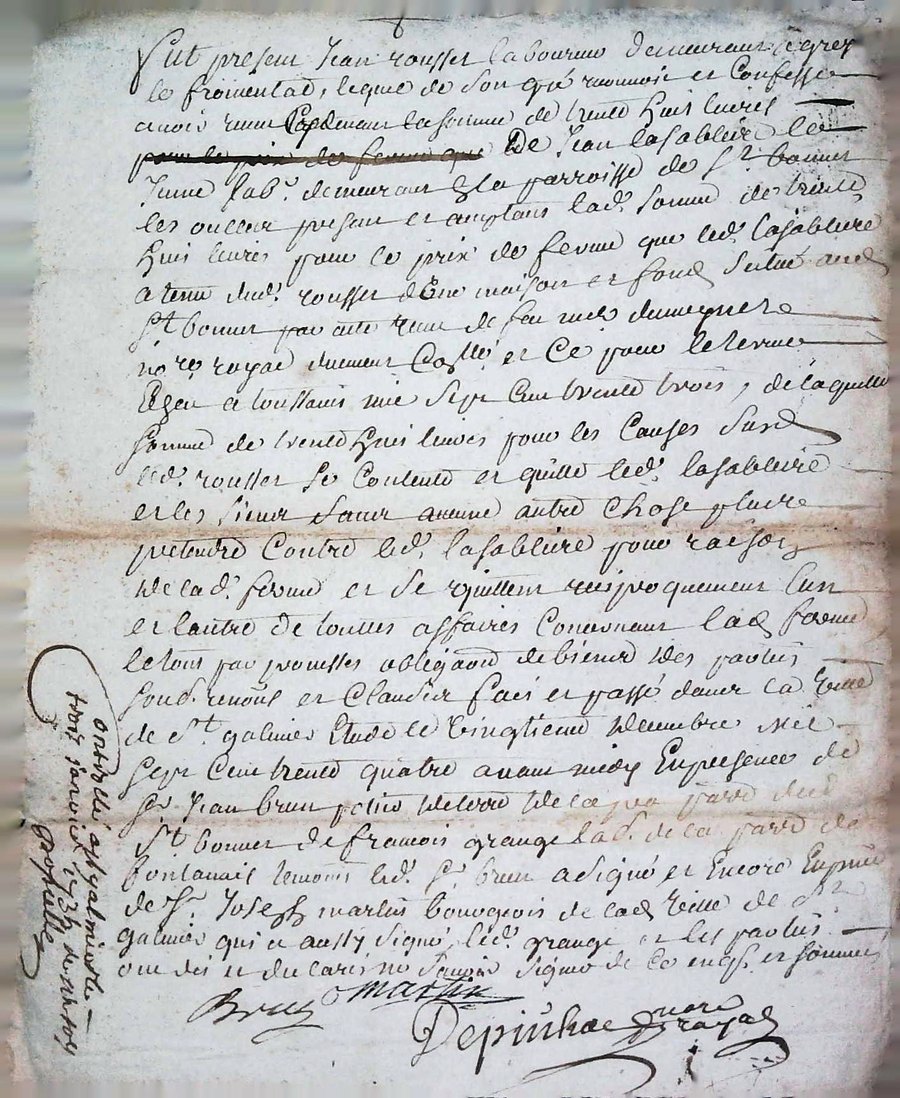 fut present Jean rousset laboureur demeurant a grez
le fromental, lequel de son gré reconnoit et Confesse
avoir receu la somme de trente huit livres
pour le prix de ferme que De Jean lasabliere le
Jeune lab.r demeurant la parroisse de S.t bonnet
les oulles present et acceptant lad. somme de trente
huit livres pour le prix de ferme que led. lasabliere
a tenu dud. rousset d'Une maison et fond situé aud
S.t bonnet par acte receu de feu
no.re royal duement Coll.né et Ce pour le terme
Echeu a toussaint mil sept Cent trente trois, de laquelle
somme de trente huit livres pour les Causes susd
led. rousset se Contente et quitte led. lasabliere
et les siens sans aucune autre Chose plus
pretendre Contre led. lasabliere pour raison
de lad. ferme et se quittent reciproquement l'un
et l'autre de touttes affaires Concernant lad ferme
le tout par promesses obligaon de biens des parties
soub. renons et Clauses fait et passé dans la Ville
de S.t galmier Etude le Vingtieme decembre mil
sept Cent trente quatre avant midy En presence de
S.r Jean brun de la parr dud
S.t bonnet de francois grange lab.r de la parr de
fontanais temoins led. S.r brun a signé et Encore En pnce
de S.r Joseph martin bourgeois de lad Ville de S.t
galmier qui a aussy signé, led. grange et les parties
ont dit et declaré ne scavoir signer de Ce enqs. et sommés
Brun martin
Depinhac no.re royal
Controllé a St galmier le
trois Janvier 1735